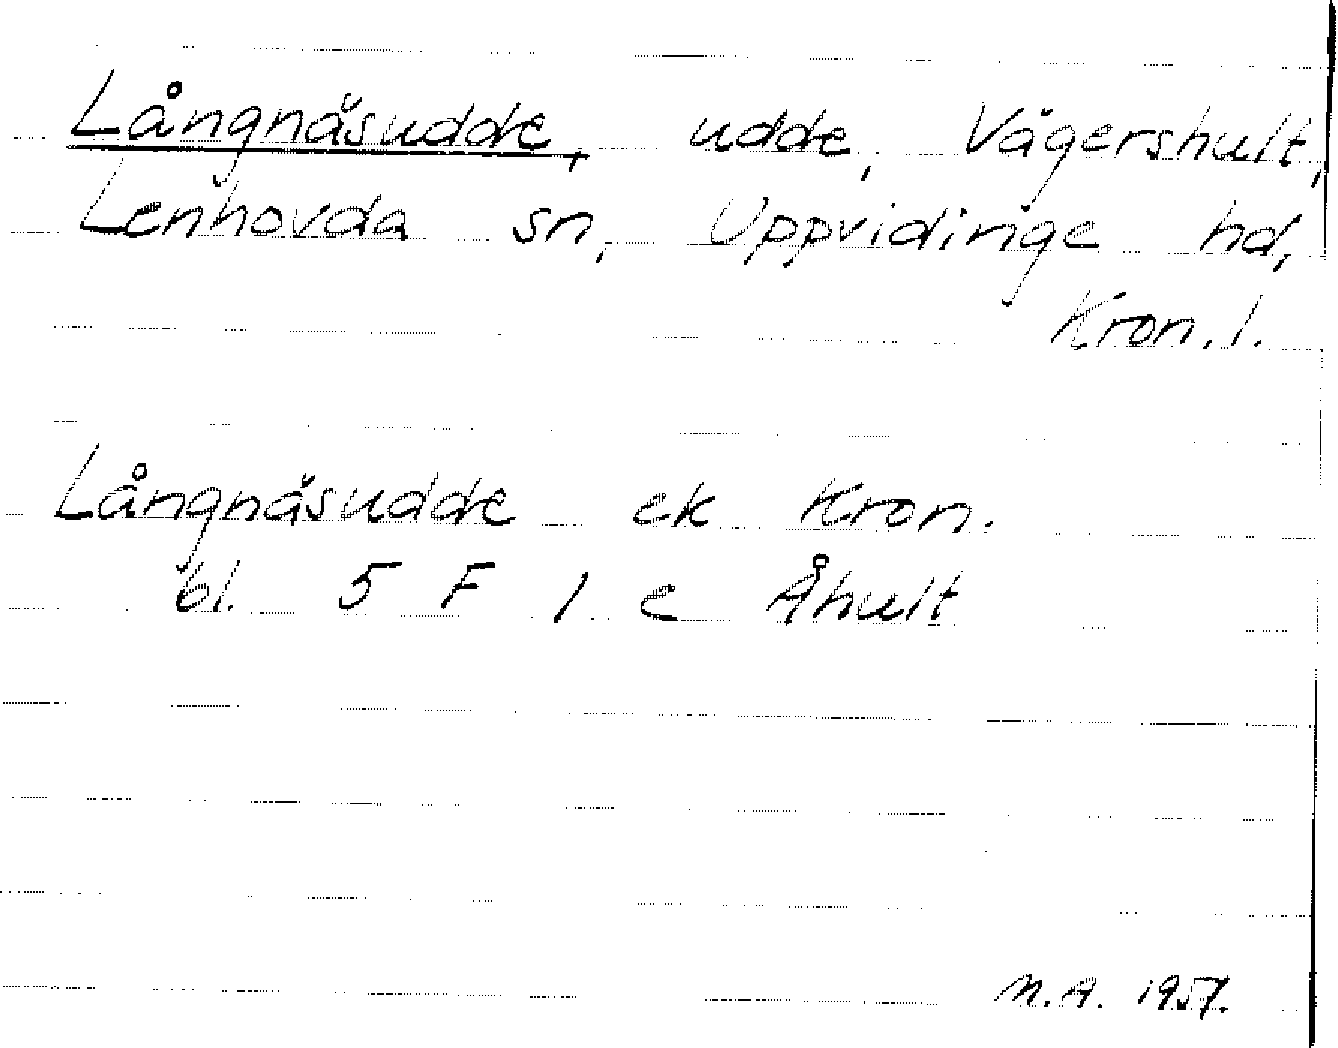 Långnäsudde, udde, Vägershult,
Lenhovda sn, Uppvidinge hd,
Kron. l.
Långnäsudde ek Kron.
bl. 5 F 1 c Åhult
M.A. 1957.